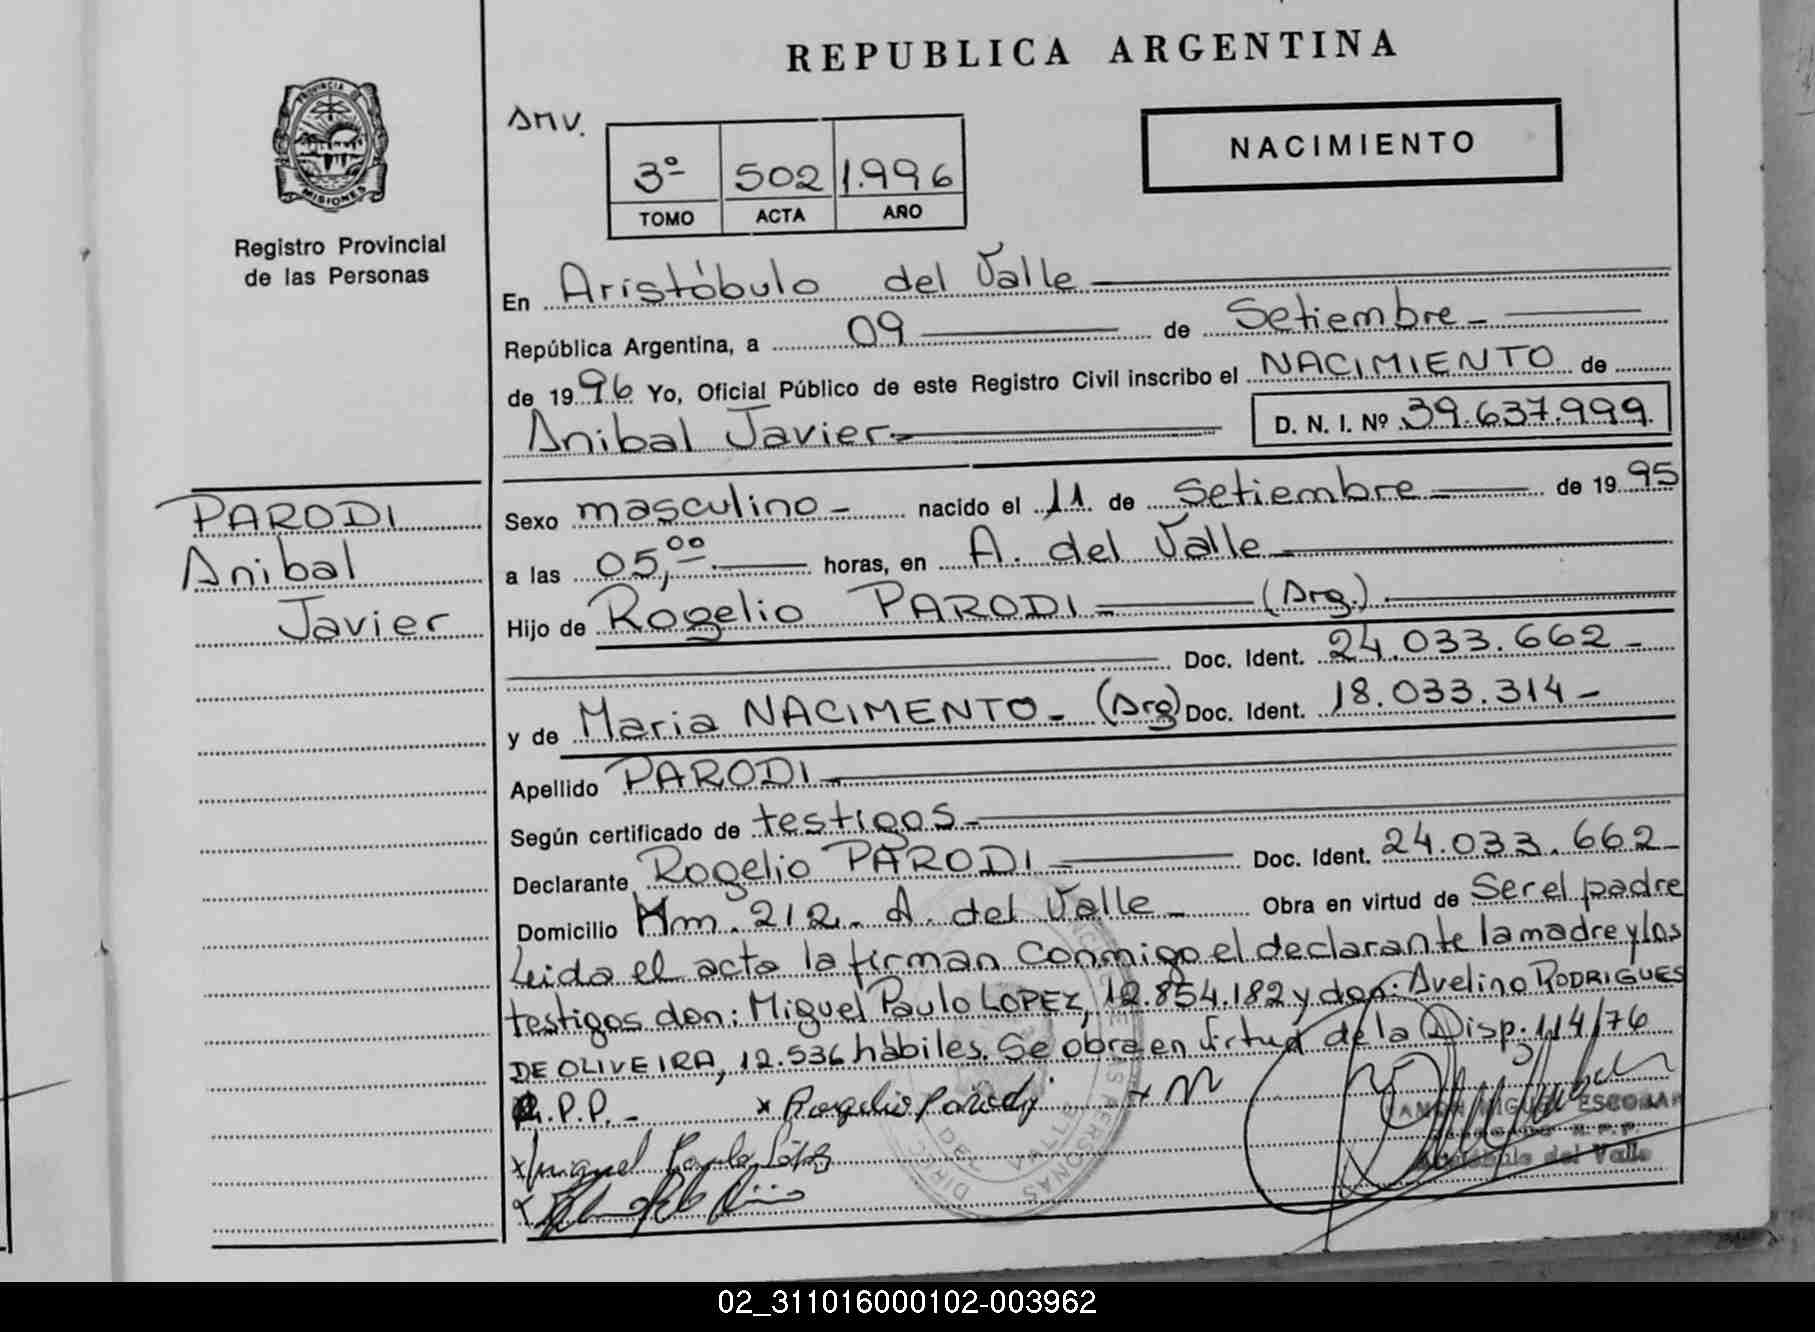 REPUBLICA ARGENTINA
PROVINCIA DE
MISIONES
Registro Provincial
de las Personas
AMV.
NACIMIENTO
3º 502 1.996
TOMO ACTA AÑO
En Aristóbulo del Valle
República Argentina, a 09 de Setiembre
de 1996 Yo, Oficial Público de este Registro Civil inscribo el NACIMIENTO de
Anibal Javier D. N. I. Nº 39.637.999.
PARODI
Anibal
Javier
Sexo masculino nacido el 11 de Setiembre de 1995
a las 05,00 horas, en A. del Valle
Hijo de Rogelio PARODI (Arg.)
Doc. Ident. 24.033.662
y de Maria NACIMENTO (Arg) Doc. Ident. 18.033.314
Apellido PARODI
Según certificado de testigos
Declarante Rogelio PARODI Doc. Ident. 24.033.662
Domicilio Km. 212. A. del Valle Obra en virtud de Ser el padre
Leida el acta la firman Conmigo el declarante la madre y los
testigos don: Miguel Paulo LOPEZ, 12.854.182 y don: Avelino RODRIGUES
DE OLIVEIRA, 12.536 hábiles. Se obra en virtud de la Disp. 114/76
R.P.P. x Rogelio Parodi + M
x miguel Paulo Lópes
RAMON MIGUEL ESCOBAR
DELEGADO R.P.P.
Aristóbulo del Valle
02_311016000102-003962